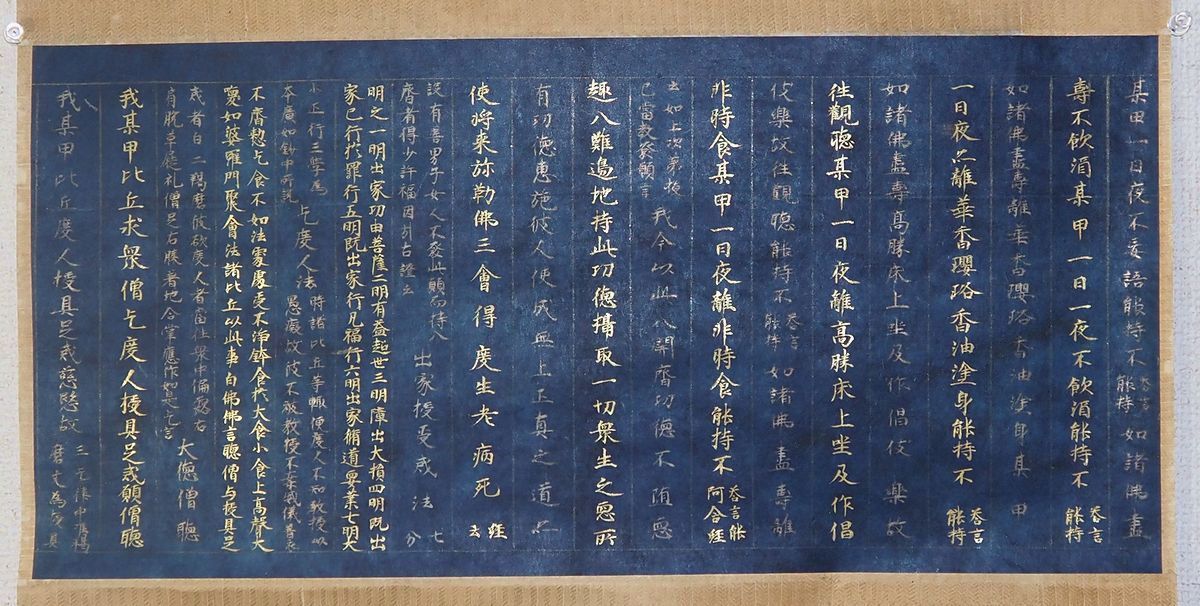 某甲一日夜不妄語能持不 答言能持 如諸佛盡
壽不飲酒某甲一日一夜不飲酒能持不 答言能持
如諸佛盡壽離華香瓔珞香油塗身某甲
一日夜亦離華香瓔珞香油塗身能持不 答言能持
如諸佛盡壽離高勝床上坐及作倡伎樂故
往觀聽某甲一日夜離高勝床上坐及作倡
伎樂故往觀聽能持不 答言能持 如諸佛盡壽離
非時食某甲一日夜離非時食能持不 答言能 阿含經
云如上次第授已當教發願言 我今以此八關齋功德不墮惡
趣八難邊地持此功德攝取一切衆生之惡所
有功德惠施彼人使成無上正真之道亦
使將來弥勒佛三會得度生老病死 經云
設有善男子女人不發此願而持八齋者得少許福因引古證云 出家授受戒法 七分
明之一明出家功由菩薩二明有益超世三明障出大損四明既出
家已行於罪行五明既出家行凡福行六明出家脩道要業七明大
小正行三學為本廣如鈔中所說 乞度人法 時諸比丘輒便度人不知教授以愚癡故彼不被教授不案威儀著衣
不齊整乞食不如法處處受不淨鉢食於大食小食上高聲大
喚如婆羅門聚會法諸比丘以此事白佛佛言聽僧与授具足
戒者白二羯磨彼欲度人者當往衆中偏露右肩脫革屣礼僧足右膝著地合掌應作如是乞言 大德僧聽
我某甲比丘求衆僧乞度人授具足戒願僧聽
我某甲比丘度人授具足戒慈愍故 三乞律中羯磨文為度具